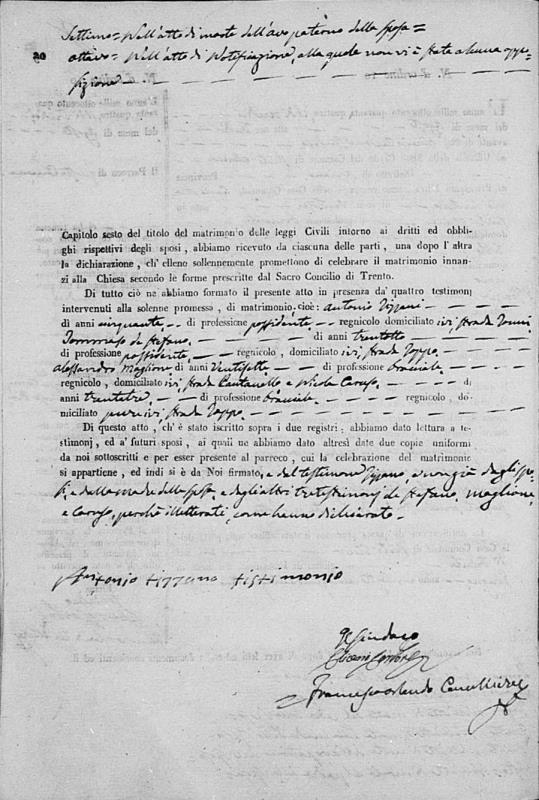 Settimo = Nell'atto di morte dell'avo paterno della sposa =
20
ottavo = Nell'atto di Notificazione, alla quale non vi è stata alcuna oppo-
sizione
Capitolo sesto del titolo del matrimonio delle leggi Civili intorno ai dritti ed obbli-
ghi rispettivi degli sposi, abbiamo ricevuto da ciascuna delle parti, una dopo l'altra
la dichiarazione, ch'elleno sollennemente promettono di celebrare il matrimonio innan-
zi alla Chiesa secondo le forme prescritte dal Sacro Concilio di Trento.
Di tutto ciò ne abbiamo formato il presente atto in presenza da' quattro testimonj
intervenuti alla solenne promessa, di matrimonio. cioè: Antonio Tizzani
di anni cinquanta di professione possidente regnicolo domiciliato ivi, strada
Tommaso de Stefano di anni trentotto
di professione possidente regnicolo, domiciliato ivi, strada Toppo
Alessandro Maglione di anni Ventisette di professione
regnicolo, domiciliato ivi, strada Cantanello e Nicola Caruso di
anni trentatre di professione regnicolo, do-
miciliato pure ivi, strada Toppo
Di questo atto, ch'è stato iscritto sopra i due registri, abbiamo dato lettura a te-
stimonj, ed a' futuri sposi, ai quali ne abbiamo dato altresì date due copie uniformi
da noi sottoscritti e per esser presente al parroco, cui la celebrazione del matrimonic
si appartiene, ed indi si è da Noi firmato, e dal testimone Tizzano, e non già dagli spo-
si, e dalla madre della sposa, e dagli altri tre testimonj de Stefano, Maglione,
e Caruso, perchè illetterati, come hanno dichiarato
Antonio tizzano tistimonio
Il Sindaco
Francesco Orlando Cancelliere